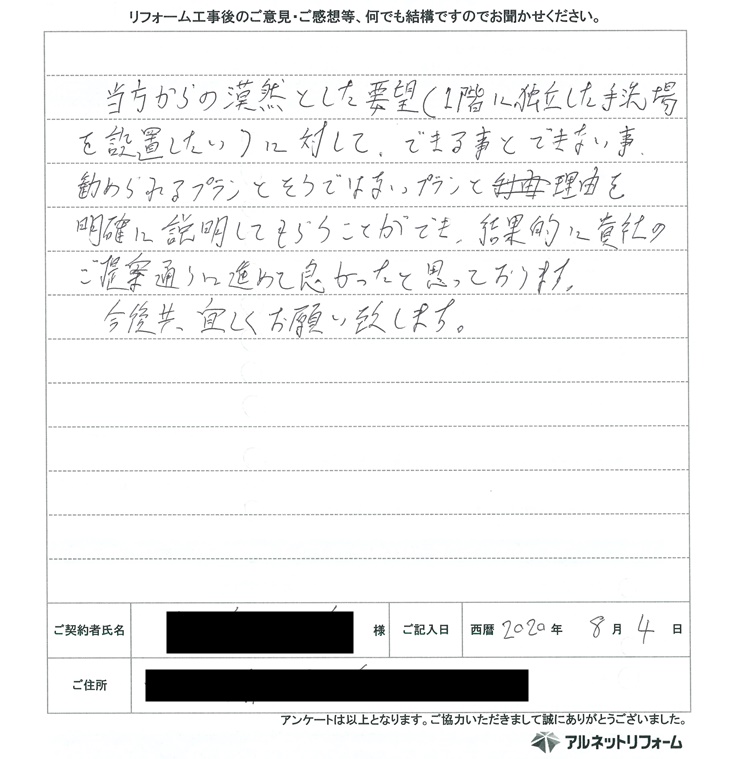 リフォーム工事後のご意見・ご感想等、何でも結構ですのでお聞かせください。
当方からの漠然とした要望(1階に独立した手洗場
を設置したい)に対して、できる事とできない事、
勧められるプランとそうではないプランと理由を
明確に説明してもらうことができ、結果的に貴社の
ご提案通りに進めて良かったと思っております。
今後共、宜しくお願い致します。
ご契約者氏名 様 ご記入日 西暦 2020 年 8 月 4 日
ご住所
アンケートは以上となります。ご協力いただきまして誠にありがとうございました。
アルネットリフォーム